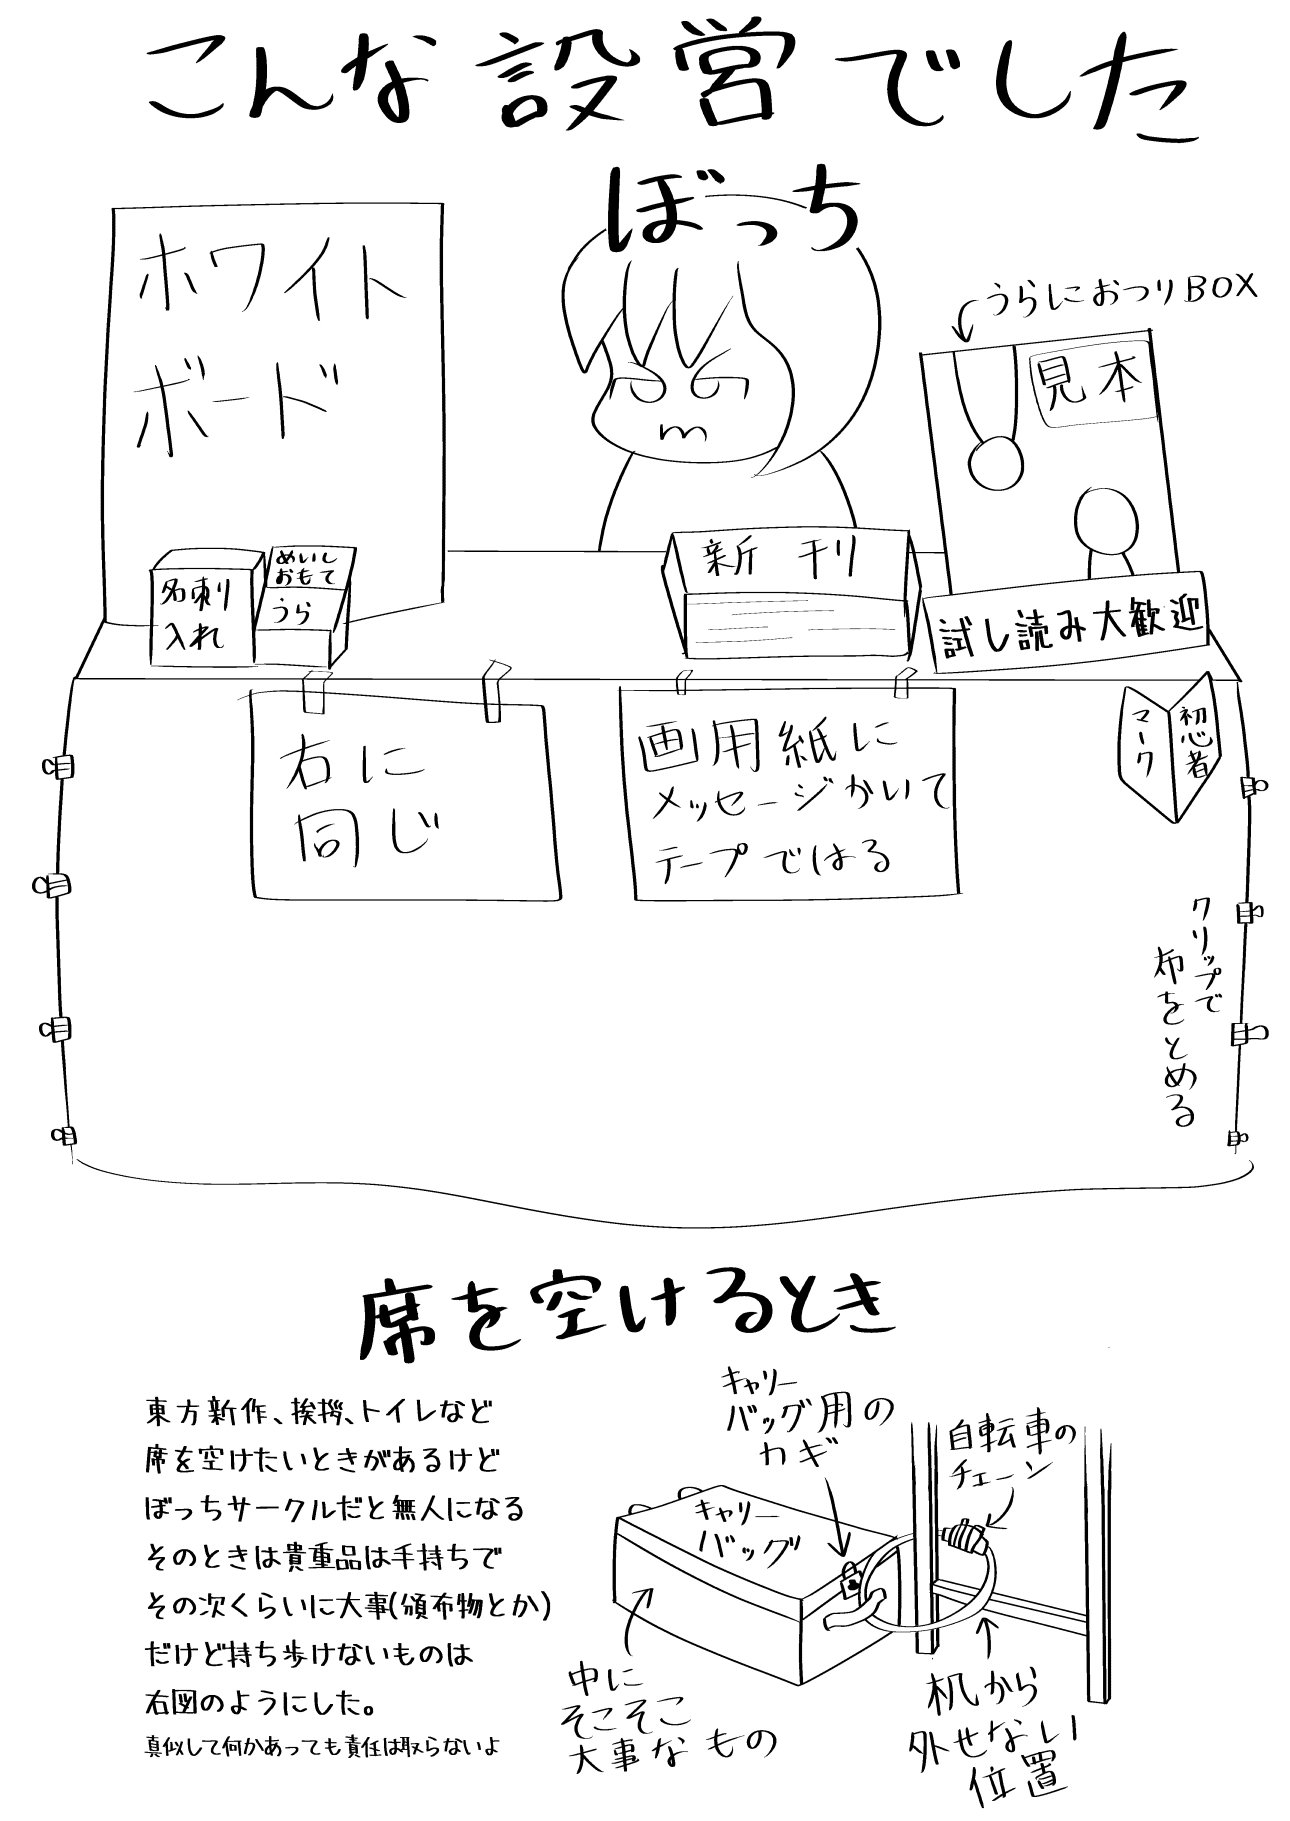 こんな設営でした
ぼっち
ホワイト
ボード
うらにおつりBOX
見本
名刺
入れ
めいし
おもて
うら
新刊
試し読み大歓迎
右に
同じ
画用紙に
メッセージかいて
テープではる
初心者
マーク
クリップで
布をとめる
席を空けるとき
東方新作、挨拶、トイレなど
席を空けたいときがあるけど
ぼっちサークルだと無人になる
そのときは貴重品は手持ちで
その次くらいに大事(頒布物とか)
だけど持ち歩けないものは
右図のようにした。
真似して何かあっても責任は取らないよ
キャリー
バッグ用の
カギ
自転車の
チェーン
キャリー
バッグ
中に
そこそこ
大事なもの
机から
外せない
位置